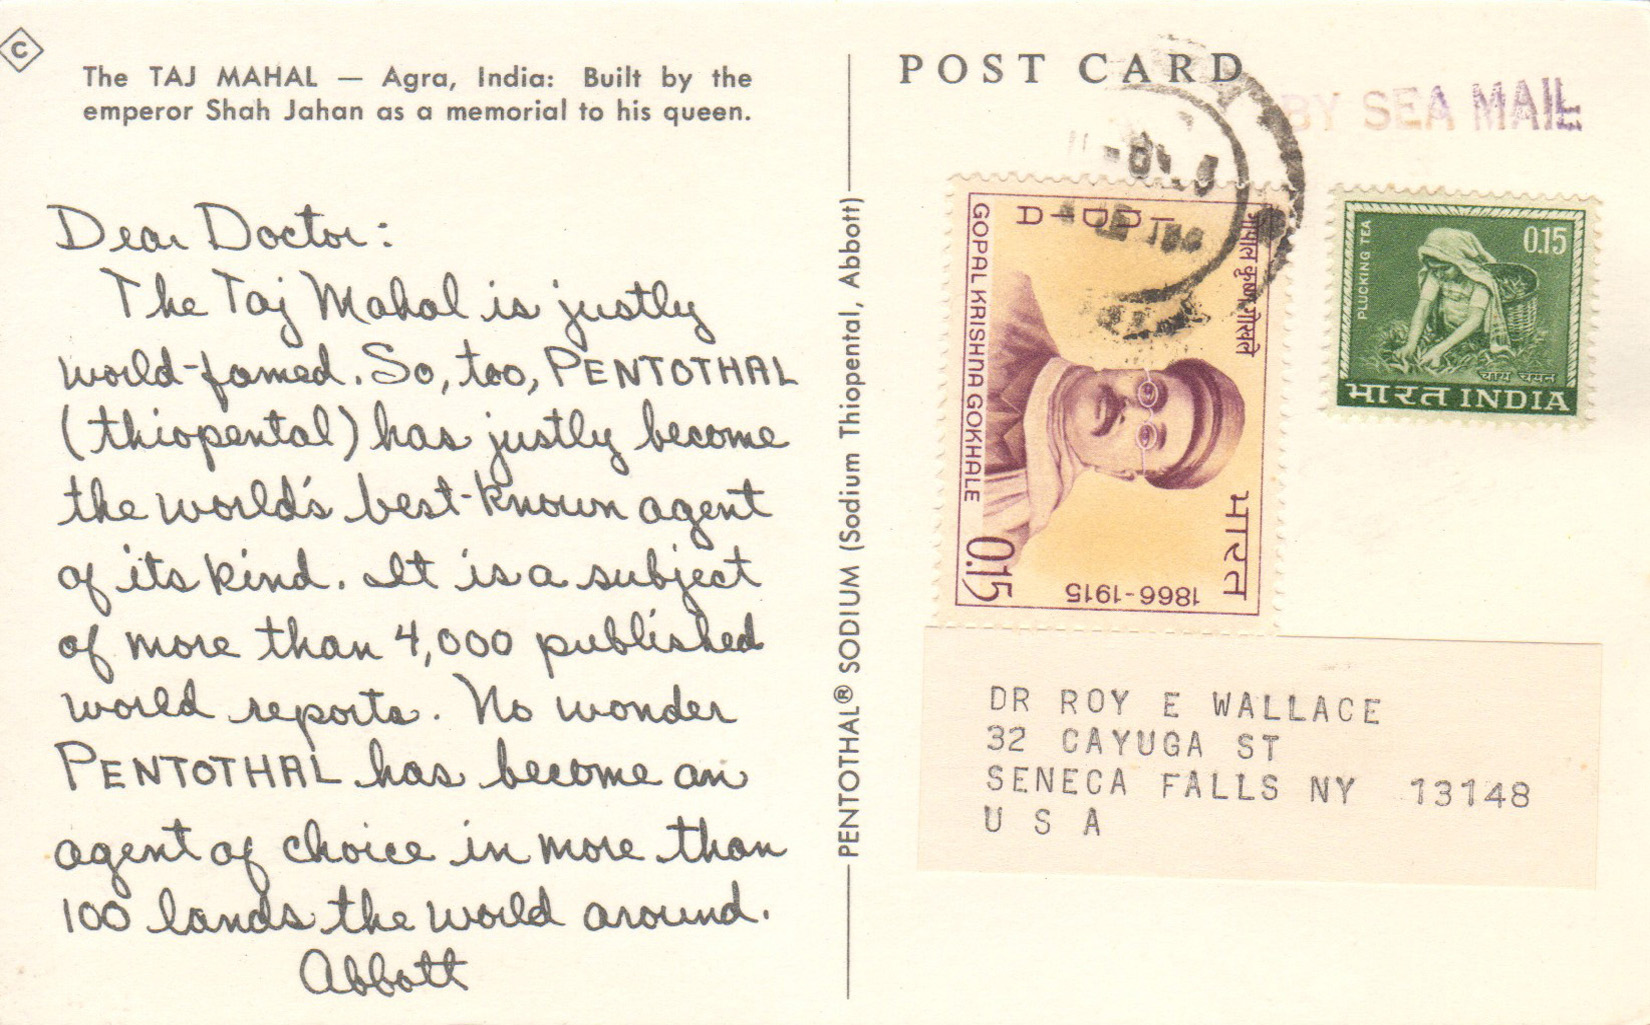 C
The TAJ MAHAL — Agra, India: Built by the
emperor Shah Jahan as a memorial to his queen.
Dear Doctor:
The Taj Mahal is justly
world-famed. So, too, PENTOTHAL
(thiopental) has justly become
the world's best-known agent
of its kind. It is a subject
of more than 4,000 published
world reports. No wonder
PENTOTHAL has become an
agent of choice in more than
100 lands the world around.
Abbott
PENTOTHAL® SODIUM (Sodium Thiopental, Abbott)
POST CARD
BY SEA MAIL
GOPAL KRISHNA GOKHALE
गोपाल कृष्ण गोखले
भारत
1866-1915
0.15
PLUCKING TEA
0.15
चाय चयन
भारत INDIA
DR ROY E WALLACE
32 CAYUGA ST
SENECA FALLS NY 13148
U S A